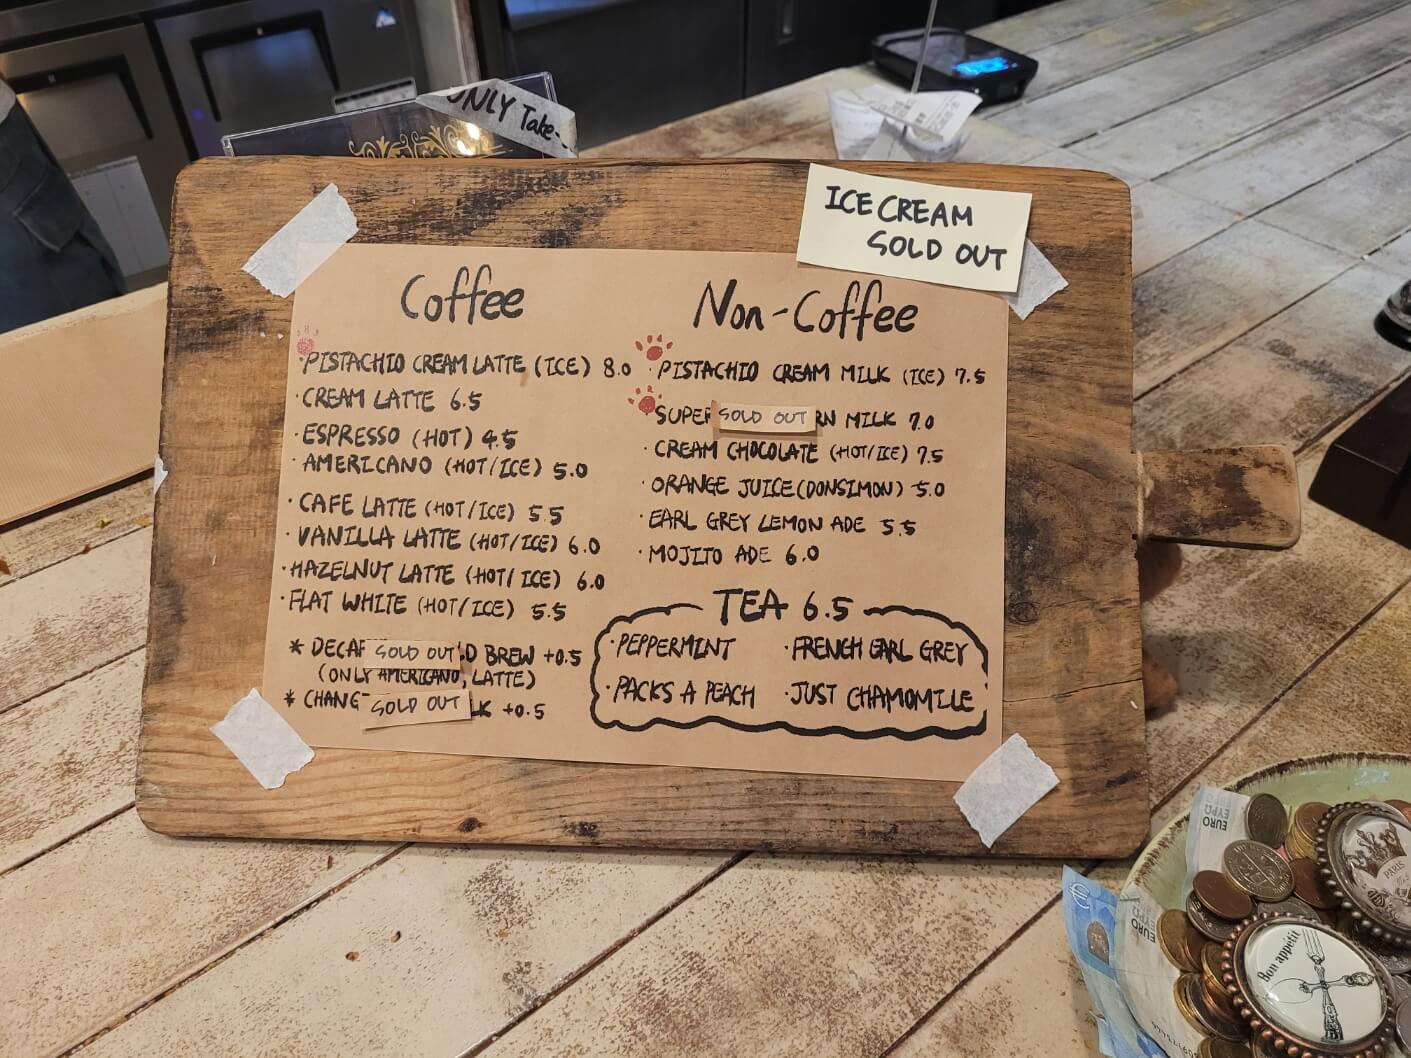 ONLY Take-
ICE CREAM
SOLD OUT
Coffee
·PISTACHIO CREAM LATTE (ICE) 8.0
·CREAM LATTE 6.5
·ESPRESSO (HOT) 4.5
·AMERICANO (HOT/ICE) 5.0
·CAFE LATTE (HOT/ICE) 5.5
·VANILLA LATTE (HOT/ICE) 6.0
·HAZELNUT LATTE (HOT/ICE) 6.0
·FLAT WHITE (HOT/ICE) 5.5
* DECAF SOLD OUT D BREW +0.5
(ONLY AMERICANO, LATTE)
* CHANG SOLD OUT LK +0.5
Non-Coffee
·PISTACHIO CREAM MILK (ICE) 7.5
·SUPER SOLD OUT RN MILK 7.0
·CREAM CHOCOLATE (HOT/ICE) 7.5
·ORANGE JUICE (DONSIMON) 5.0
·EARL GREY LEMON ADE 5.5
·MOJITO ADE 6.0
TEA 6.5
·PEPPERMINT ·FRENCH EARL GREY
·PACKS A PEACH ·JUST CHAMOMILE
EURO
ΕΥΡΩ
EURO
ΕΥΡΩ
PARIS
Bon appétit